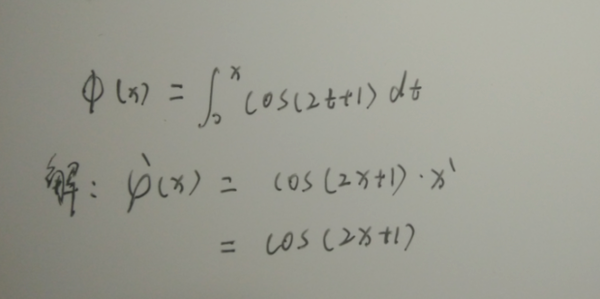 Φ(x) = ∫₀ˣ cos(2t+1) dt
解: φ'(x) = cos(2x+1)·x'
= cos(2x+1)